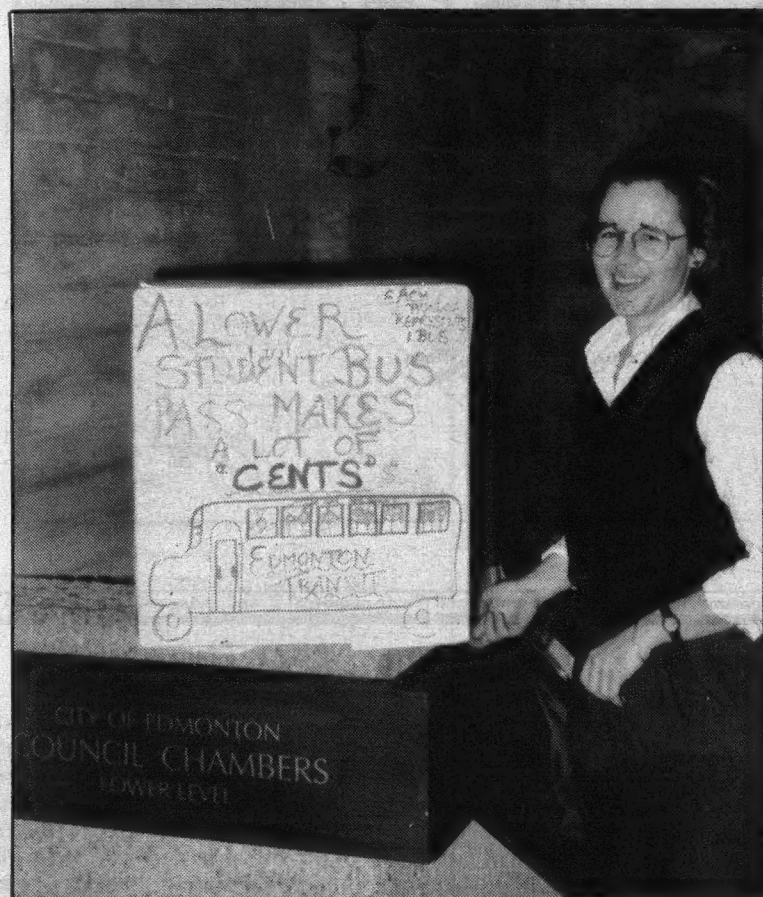 A LOWER
STUDENT BUS
PASS MAKES
A LOT OF
"CENTS"
EACH
REPRESENTS
1 BUS
EDMONTON
TRANSIT
CITY OF EDMONTON
COUNCIL CHAMBERS
LOWER LEVEL